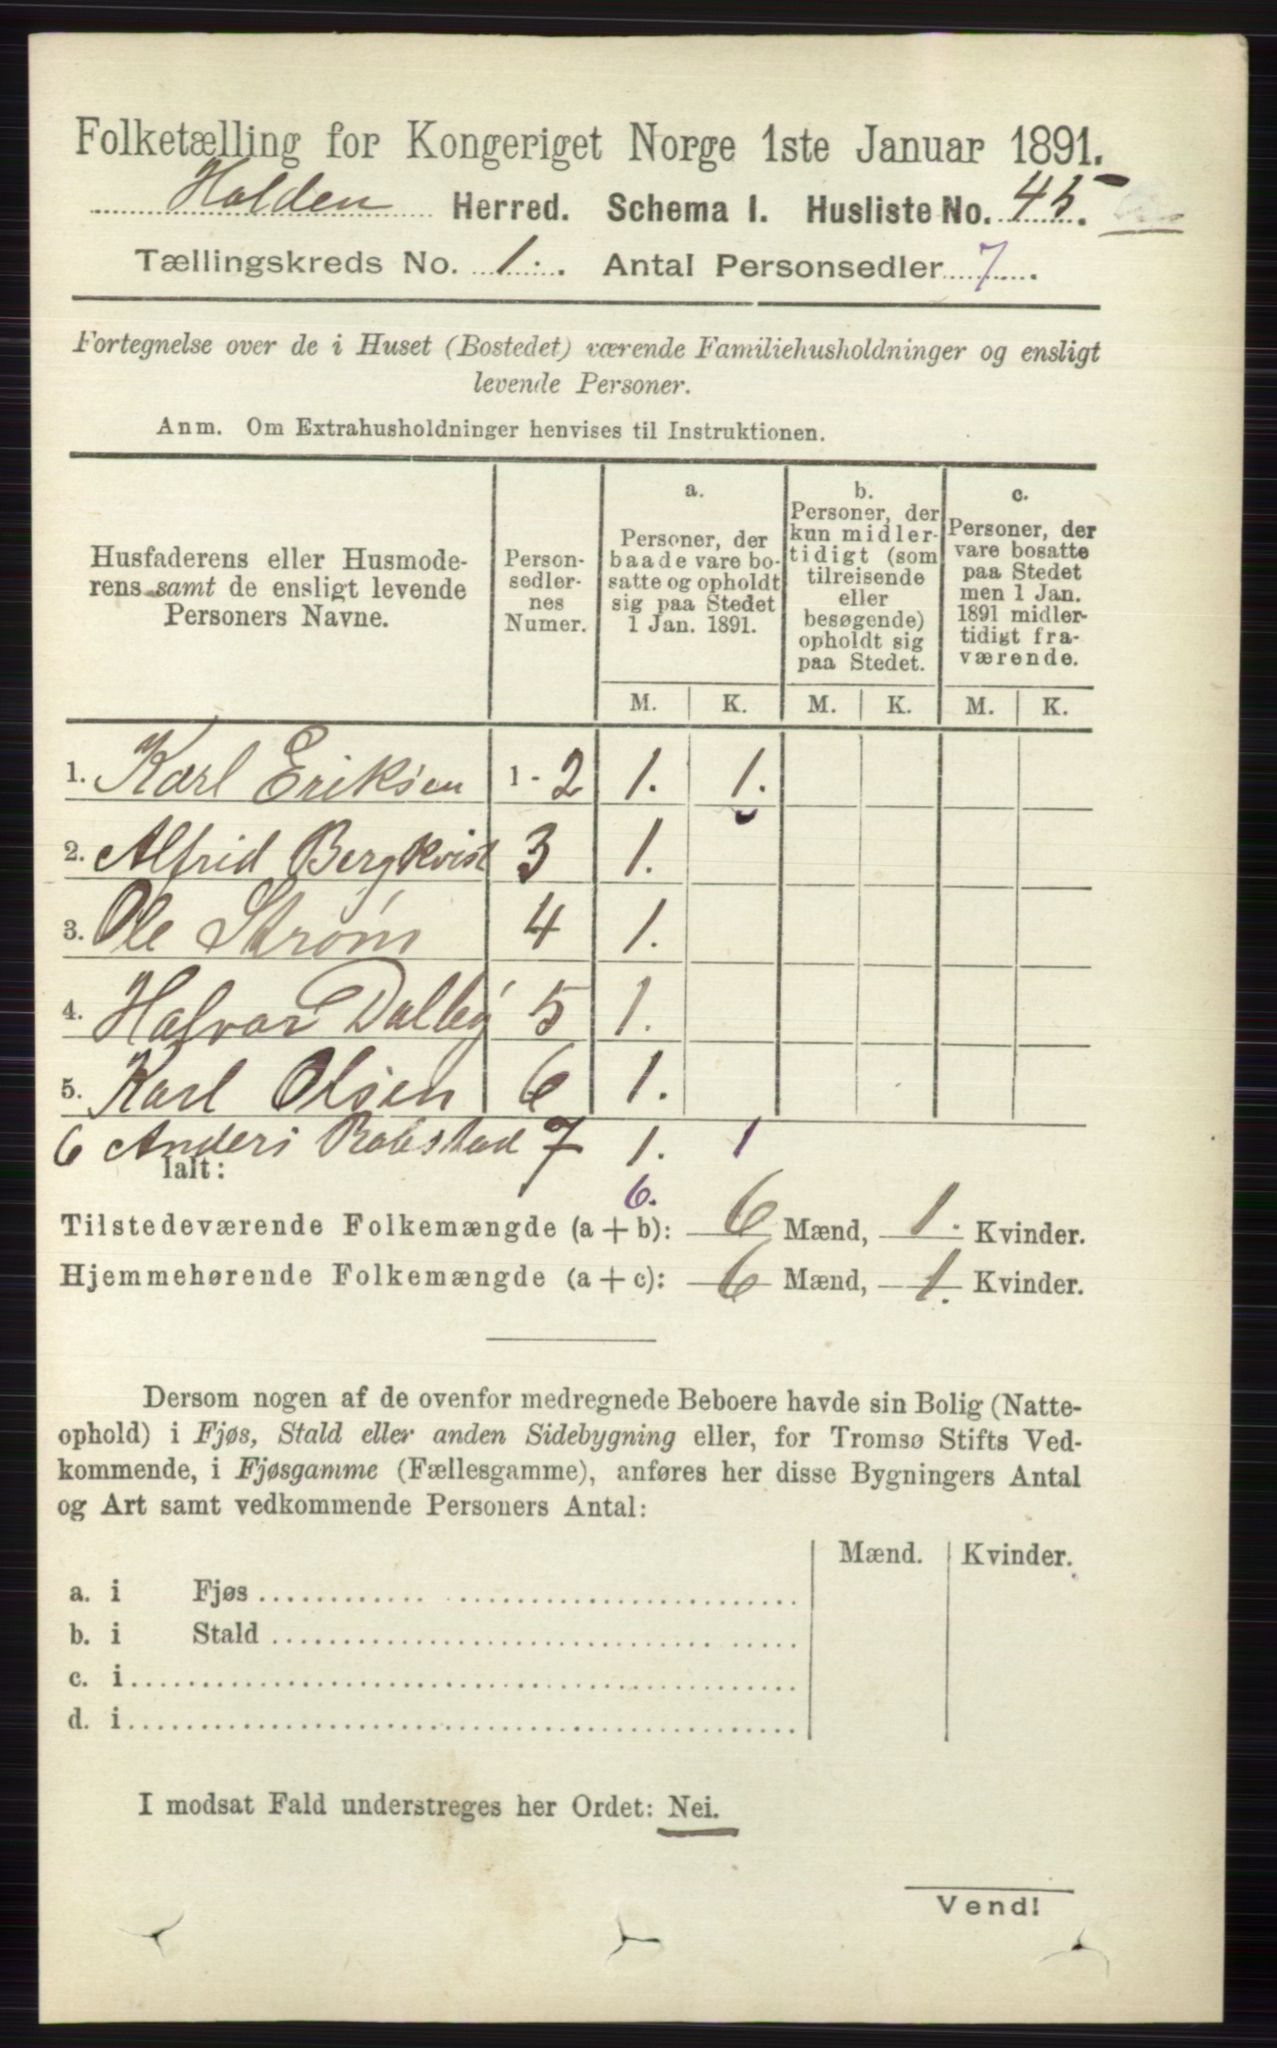 Folketælling for Kongeriget Norge 1ste Januar 1891.
Holden Herred. Schema I. Husliste No. 45.
Tællingskreds No. 1. Antal Personsedler 7.
Fortegnelse over de i Huset (Bostedet) værende Familiehusholdninger og ensligt
levende Personer.
Anm. Om Extrahusholdninger henvises til Instruktionen.
Husfaderens eller Husmode-
rens samt de ensligt levende
Personers Navne.
Person-
sedler-
nes
Numer.
a.
Personer, der
baade vare bo-
satte og opholdt
sig paa Stedet
1 Jan. 1891.
b.
Personer, der
kun midler-
tidigt (som
tilreisende
eller
besøgende)
opholdt sig
paa Stedet.
c.
Personer, der
vare bosatte
paa Stedet
men 1 Jan.
1891 midler-
tidigt fra-
værende.
M. K. M. K. M. K.
1. Karl Eriksen 1 - 2 1. 1.
2. Alfrid Bergkvist 3 1.
3. Ole Strøm 4 1.
4. Halvor Dalby 5 1.
5. Karl Olsen 6 1.
6 Anders 7 1. 1
Ialt:
6.
Tilstedeværende Folkemængde (a + b): 6 Mænd, 1. Kvinder.
Hjemmehørende Folkemængde (a + c): 6 Mænd, 1. Kvinder.
Dersom nogen af de ovenfor medregnede Beboere havde sin Bolig (Natte-
ophold) i Fjøs, Stald eller anden Sidebygning eller, for Tromsø Stifts Ved-
kommende, i Fjøsgamme (Fællesgamme), anføres her disse Bygningers Antal
og Art samt vedkommende Personers Antal:
Mænd. Kvinder.
a. i Fjøs
b. i Stald
c. i
d. i
I modsat Fald understreges her Ordet: Nei.
Vend!